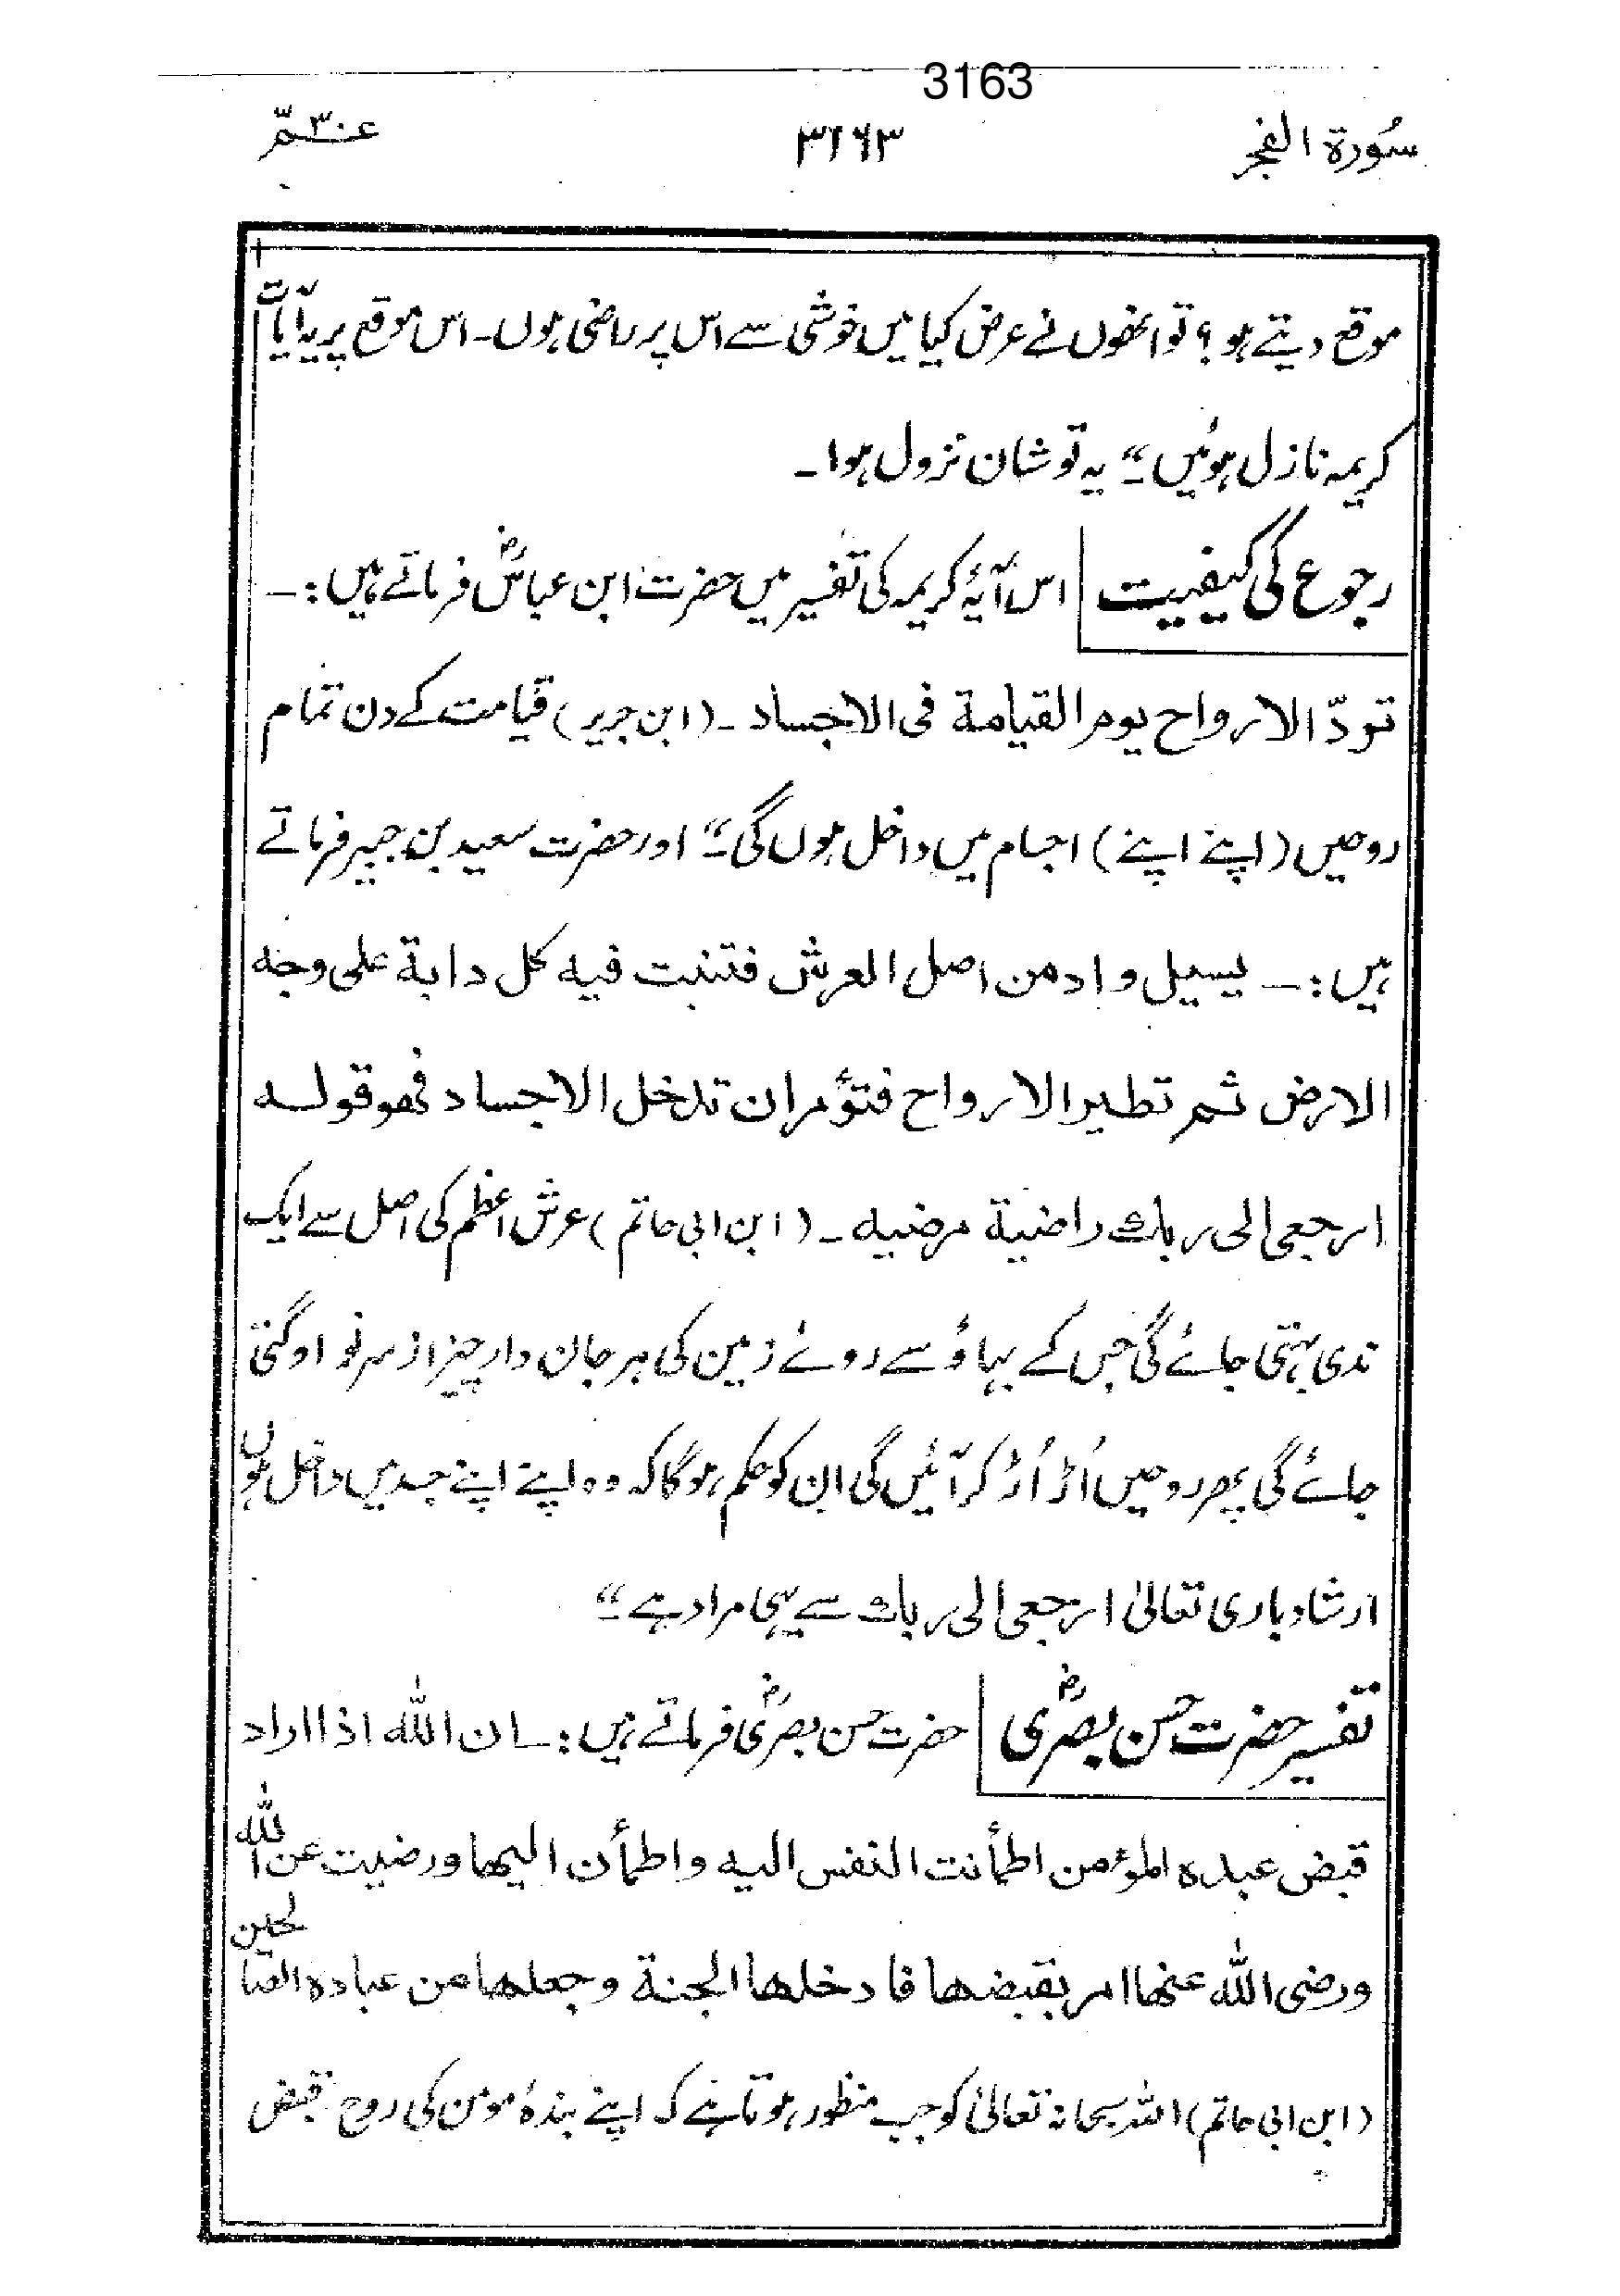 3163
سُورۃ الفجر ۳۱۶۳ عـــمّ ۳۰
موقع دیتے ہو؟ تو انھوں نے عرض کیا میں خوشی سے اس پر راضی ہوں۔ اس موقع پر یہ آیات
کریمہ نازل ہوئیں۔“ یہ تو شان نزول ہوا۔
رجوع کی کیفیت اس آیۂ کریمہ کی تفسیر میں حضرت ابن عباسؓ فرماتے ہیں:۔
تودّ الارواح یوم القیامة فی الاجساد۔ (ابن جریر) قیامت کے دن تمام
روحیں (اپنے اپنے) اجسام میں داخل ہوں گی۔“ اور حضرت سعید بن جبیر فرماتے
ہیں:۔ یسیل واد من اصل العرش فتنبت فیه کل دابة علی وجه
الارض ثم تطیر الارواح فتؤمر ان تدخل الاجساد فهو قوله
ارجعی الی ربك راضیة مرضیه۔ (ابن ابی حاتم) عرش اعظم کی اصل سے ایک
ندی بہتی جائے گی جس کے بہاؤ سے روئے زمین کی ہر جان دار چیز از سر نو اوگتی
جائے گی پھر روحیں اُڑ اُڑ کر آئیں گی ان کو حکم ہوگا کہ وہ اپنے اپنے جسد میں داخل ہوں
ارشاد باری تعالیٰ ارجعی الی ربك سے یہی مراد ہے۔“
تفسیر حضرت حسن بصریؓ حضرت حسن بصریؓ فرماتے ہیں:۔ ان اللّٰه اذا اراد
قبض عبده المؤمن اطمأنت النفس الیه واطمأن الیها ورضیت عن اللّٰه
ورضی اللّٰه عنها امر بقبضها فادخلها الجنة وجعلها من عباده الصالحین
(ابن ابی حاتم) اللہ سبحانہ تعالیٰ کو جب منظور ہوتا ہے کہ اپنے بندۂ مومن کی روح قبض